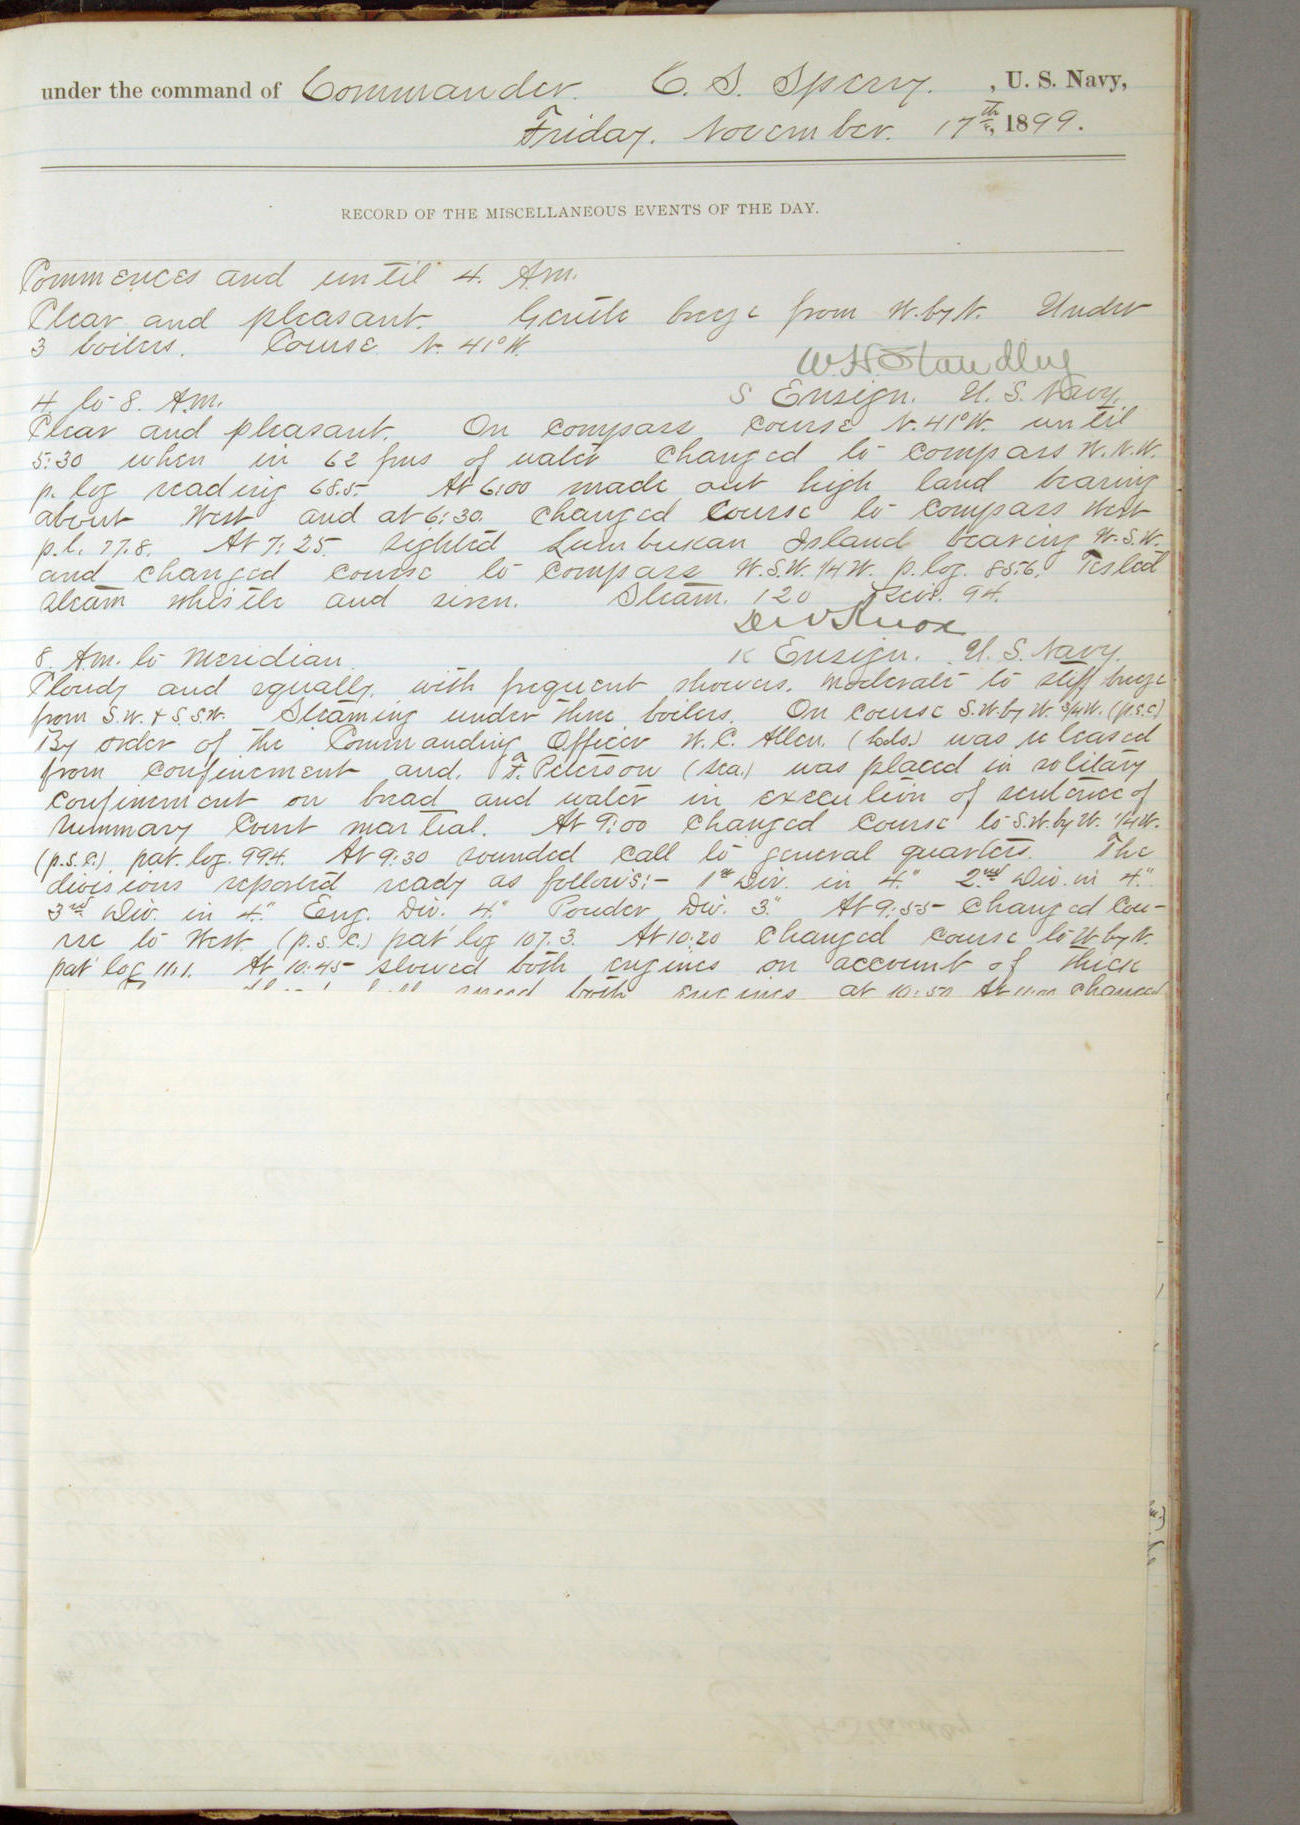 under the command of Commander. C. S. Sperry. , U. S. Navy,
Friday. November. 17th, 1899.
RECORD OF THE MISCELLANEOUS EVENTS OF THE DAY.
Commences and until 4. A.m.
Clear and pleasant. Gentle breeze from N. by N. Under
3 boilers. Course N. 41° W.
W. H. Standley
S Ensign. U. S. Navy.
4. to 8. A.m.
Clear and pleasant. On compass course N. 41° W. until
5:30 when in 62 fms of water changed to compass W. N. W.
p. log reading 68.5. At 6:00 made out high land bearing
about West and at 6:30. changed course to compass West
p. l. 77.8. At 7:25. sighted Lumbucan Island bearing W. S. W.
and changed course to compass W. S. W. 1/4 W. p. log. 85.6. Tested
steam whistle and siren. Steam. 120 Rev. 94.
D W Knox
K Ensign. U. S. Navy.
8. A.m. to Meridian.
Cloudy and squally, with frequent showers. Moderate to stiff breeze
from S. W. & S. S. W. Steaming under three boilers. On course S. W. by W. 3/4 W. (p.s.c)
By order of the Commanding Officer W. C. Allen. (lds.) was released
from confinement and. F. Peterson (sea.) was placed in solitary
confinement on bread and water in execution of sentence of
summary Court martial. At 9:00 changed course to S. W. by W. 1/4 W.
(p.s.c.) pat. log. 99.4. At 9:30 sounded call to general quarters. The
divisions reported ready as follows:- 1st Div. in 4." 2nd Div. in 4."
3rd Div. in 4." Eng. Div. 4." Powder Div. 3." At 9:55 changed Cou-
rse to West (p.s.c.) pat log 107.3. At 10:20 changed course to W. by N.
pat log 111.1. At 10:45 slowed both engines on account of thick
speed both engines at 10:50 At 11:00 changed